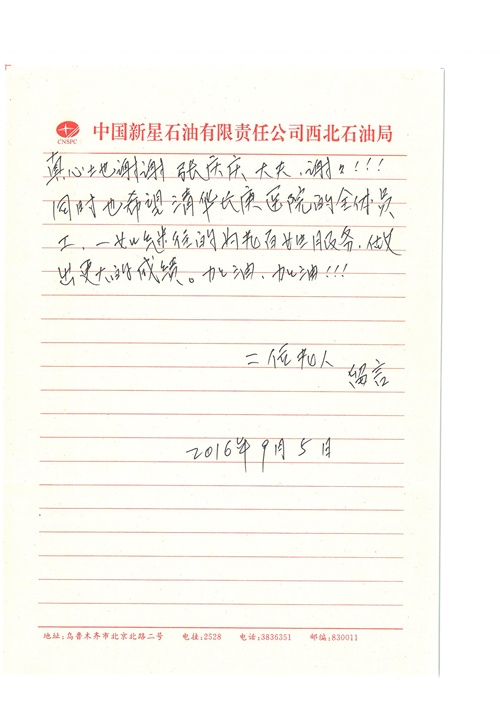 CNSPC
中国新星石油有限责任公司西北石油局
真心地谢谢张庆庆大夫,谢々!!!
同时也希望清华长庚医院的全体员
工,一如继往的为札百姓服务,做
出更大的成绩。加油,加油!!!
二位札人
留言
2016年9月5日
地址:乌鲁木齐市北京北路二号 电挂:2528 电话:3836351 邮编:830011